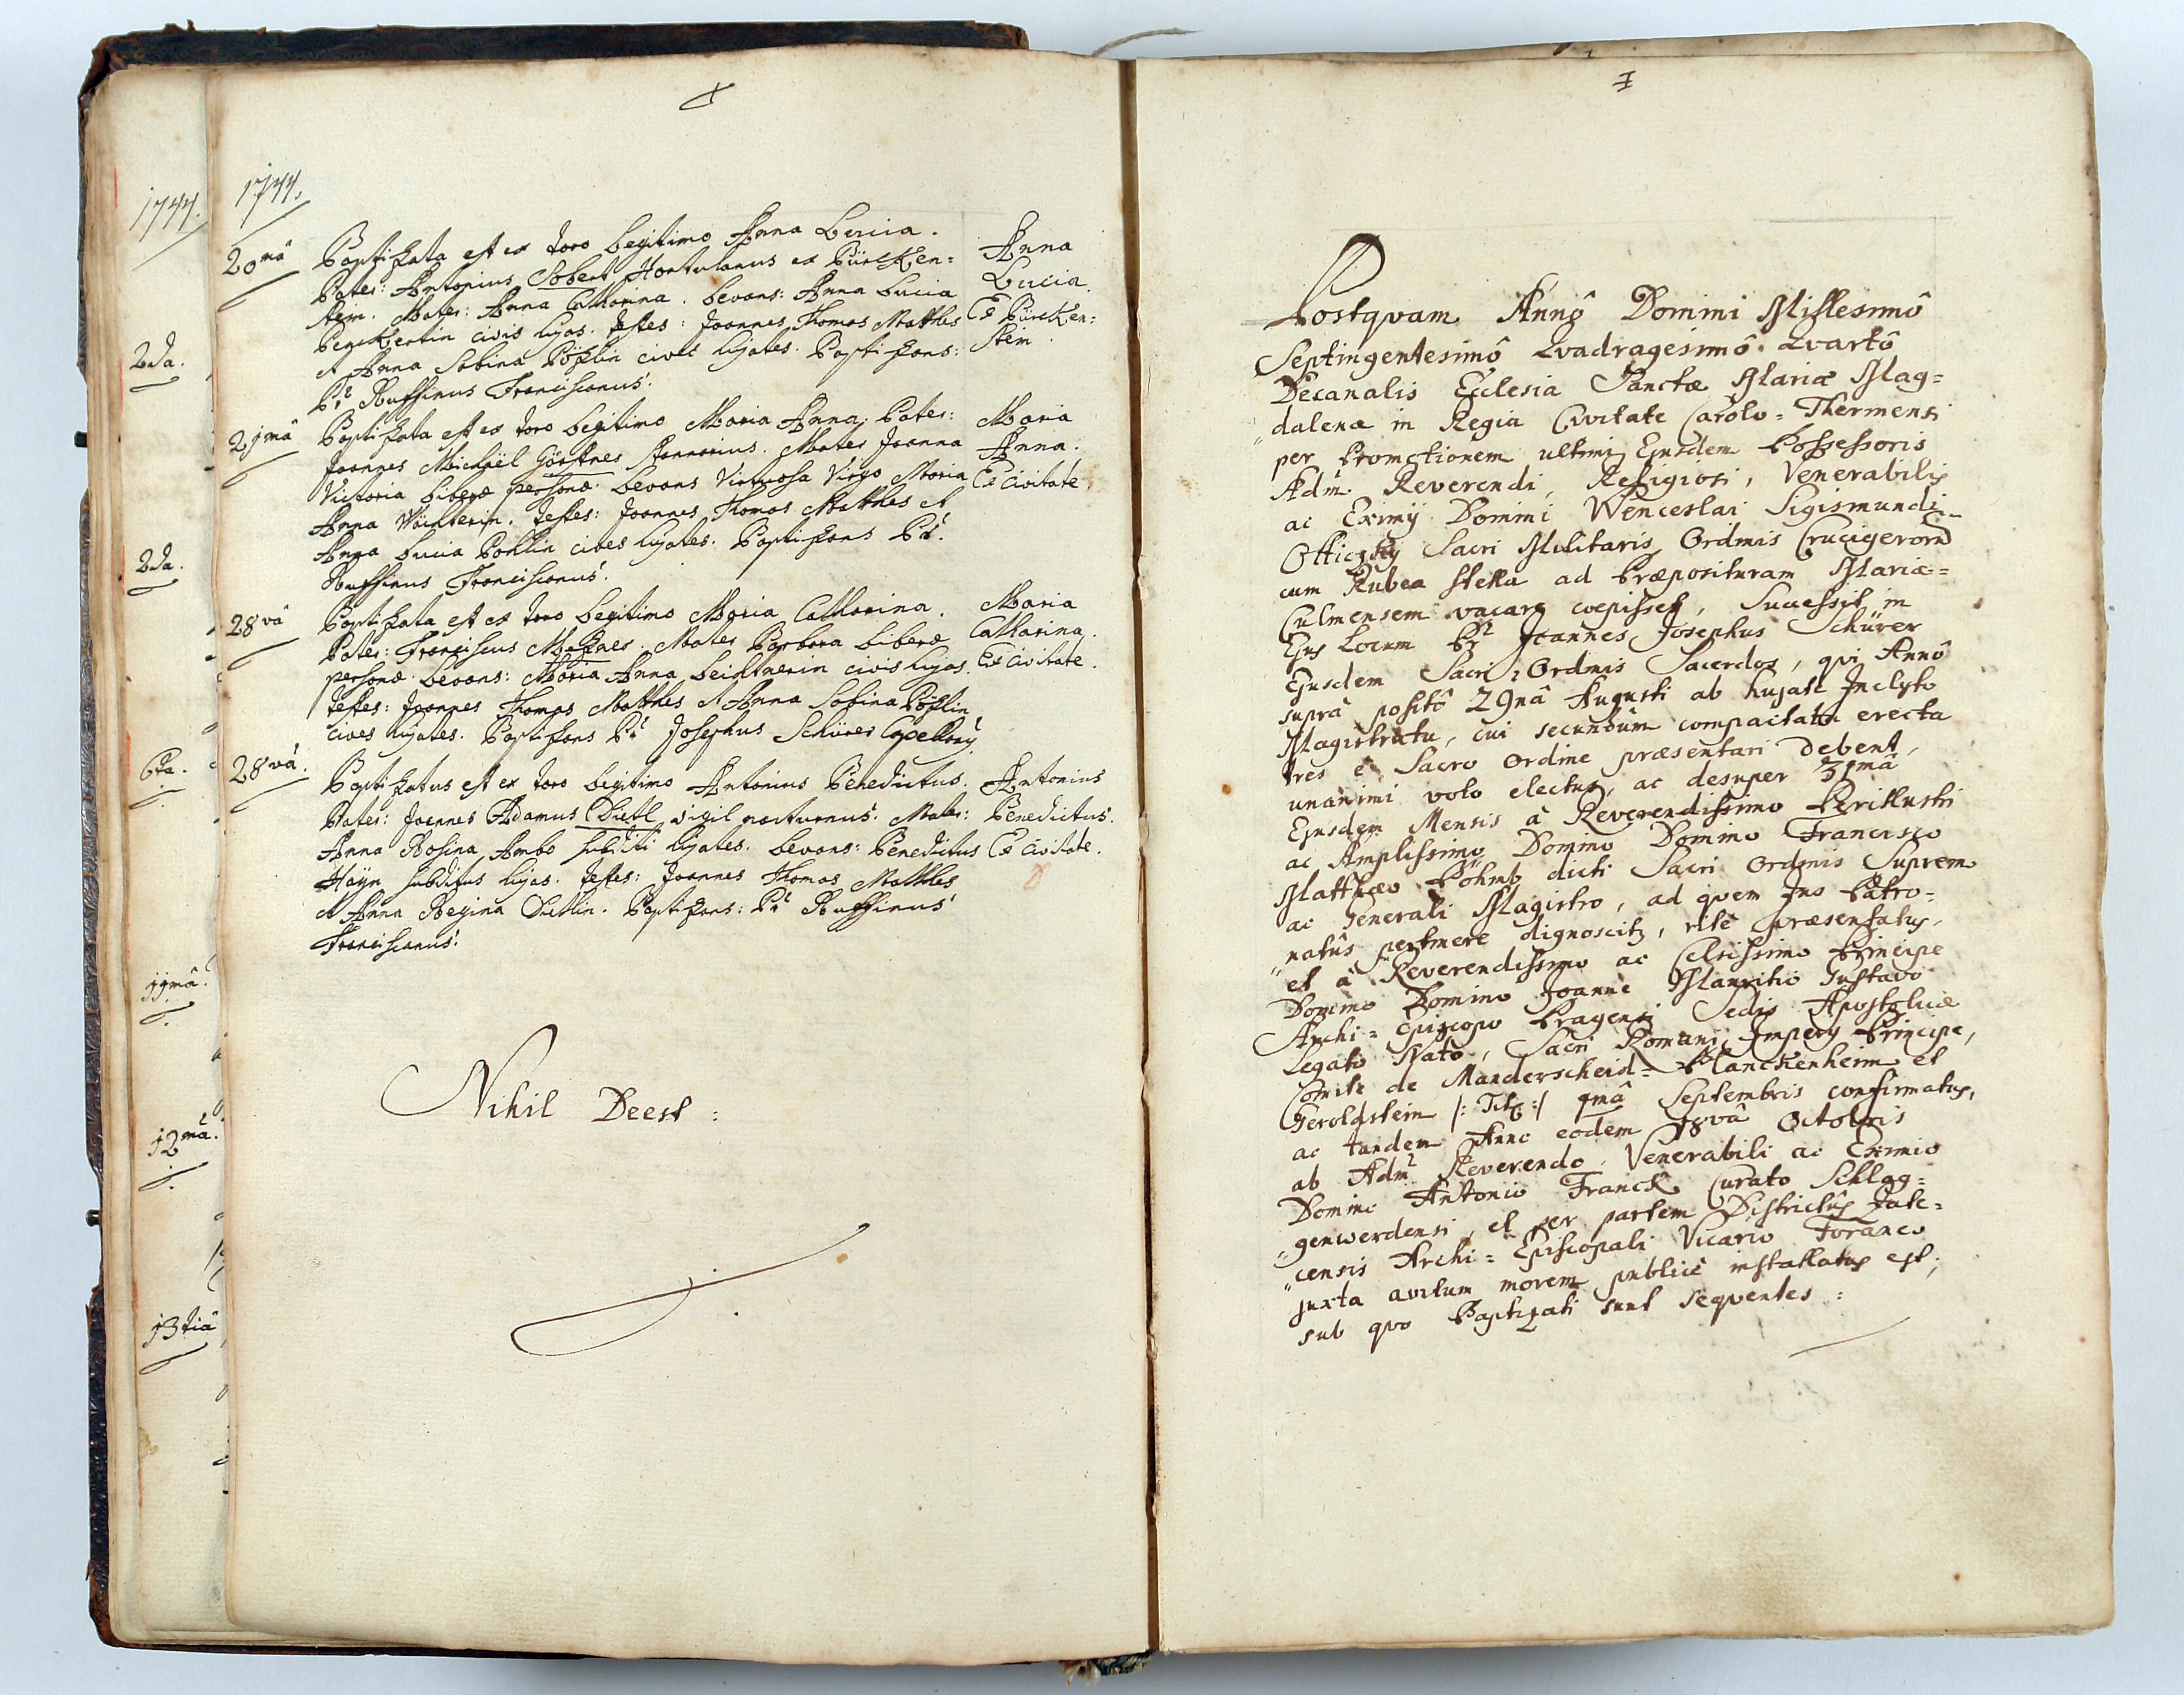 1744.
2da.
2da.
6ta.
11mâ.
12mâ.
13tiâ
1744.
20mâ
Baptizata est ex toro legitimo Anna Lucia.
Pater: Antonius Sobert Hortulanus ex Pürcken=
stein. Mater: Anna Catharina. Levans: Anna Lucia
civis hujas. Testes: Joannes Thomas Matthes
et Anna Sabina Pöhlin cives hujates. Baptizans:
Pr. Ruffinus Franciscanus.
Anna
Lucia.
Ex Pürcken=
stein.
21mâ
Baptizata est ex toro legitimo Maria Anna. Pater:
Joannes Michaël Görstner Stannarius. Mater Joanna
Victoria liberæ personæ. Levans Virtuosa Virgo Maria
Anna Wünterin. Testes: Joannes Thomas Matthes et
Anna Lucia Pöhlin cives hujates. Baptizans Pr.
Ruffinus Franciscanus.
Maria
Anna.
Ex Civitate.
28vâ
Baptizata est ex toro legitimo Maria Catharina.
Pater: Franciscus Mater Barbara liberæ
personæ. Levans: Maria Anna civis hujas.
Testes: Joannes Thomas Matthes et Anna Sabina Pöhlin
cives hujates. Baptizans Pr. Josephus Schürer Capellan9
Maria
Catharina.
Ex Civitate.
28vâ.
Baptizatus est ex toro legitimo Antonius Benedictus.
Pater: Joannes Adamus Dietl vigil nocturnus. Mater:
Anna Rosina Ambo subditi hujates. Levans: Benedictus
Haÿn subditus hujas. Testes: Joannes Thomas Matthes
et Anna Regina Dietlin. Baptizans: Pr. Ruffinus
Franciscanus.
Antonius
Benedictus.
Ex Civitate.
Nihil Deest:
Postqvam Annô Domini Millesimô
Septingentesimô Qvadragesimô Qvartô
Decanalis Ecclesia Sanctæ Mariæ Mag=
"dalenæ in Regia Civitate Carolo=Thermensi
per Promotionem ultimi Ejusdem Possessoris
Adm. Reverendi, Religiosi, Venerabilis
ac Eximij Domini Wenceslai Sigismundi
Otticzky Sacri Militaris Ordinis Crucigerorũ
cum Rubea Stella ad Præposituram Mariæ=
Culmensem vacare coepisset, Successit in
Ejus Locum Pr. Joannes Josephus Schürer
Ejusdem Sacri Ordinis Sacerdos, qvi Annô
suprà positô 29nâ Augusti ab hujate Inclyto
Magistratu, cui secundùm compactata erecta
tres è Sacro Ordine præsentari debent,
unanimi voto electus, ac desuper 31mâ
Ejusdem Mensis à Reverendissimo Perillustri
ac Amplissimo Domino Domino Francisco
Matthæo Böhmb dicti Sacri Ordinis Supremo
ac Generali Magistro, ad qvem Jus Patro=
"natûs pertinere dignoscitr, ritè præsentatus,
et à Reverendissimo ac Celsissimo Principe
Domino Domino Joanne Mauritio Gustavo
Archi=Episcopo Pragensi Sedis Apostolicæ
Legato Nato, Sacri Romani Imperij Principe,
Comite de Manderscheid=Blanckenheim et
Geroldstein /: Titl :/ 9mâ Septembris confirmatus,
ac tandem Anno eodem 18vâ Octobris
ab Adm. Reverendo, Venerabili ac Eximio
Domino Antonio Franck Curato Schlag=
"genwerdensi, et per partem Districtûs Zate=
"censis Archi=Episcopali Vicario Foraneo
juxta avitum morem publicè installatus est;
sub qvo Baptizati sunt seqventes: